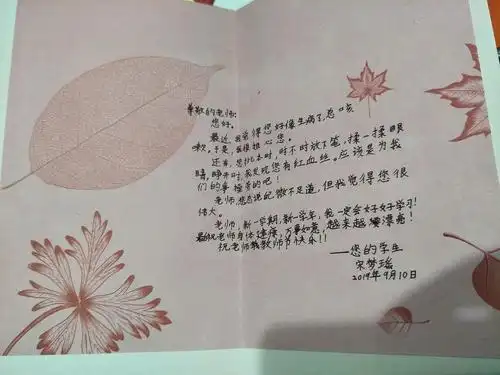 尊敬的老师:
您好。
最近,我觉得您好像生病了,总咳
嗽。于是,我很担心您。
还有,您批本时,时不时放下笔,揉一揉眼
睛,睁开时,我发现您有红血丝。应该是为我
们的事操劳的吧!
老师,您总说 微不足道,但我觉得您很
伟大。
老师,新一学期,新一学年,我一定会好好学习!
最后祝老师身体健康,万事如意,越来越漂亮!
祝老师教师节快乐!!
——您的学生
宋梦瑶
2019年9月10日